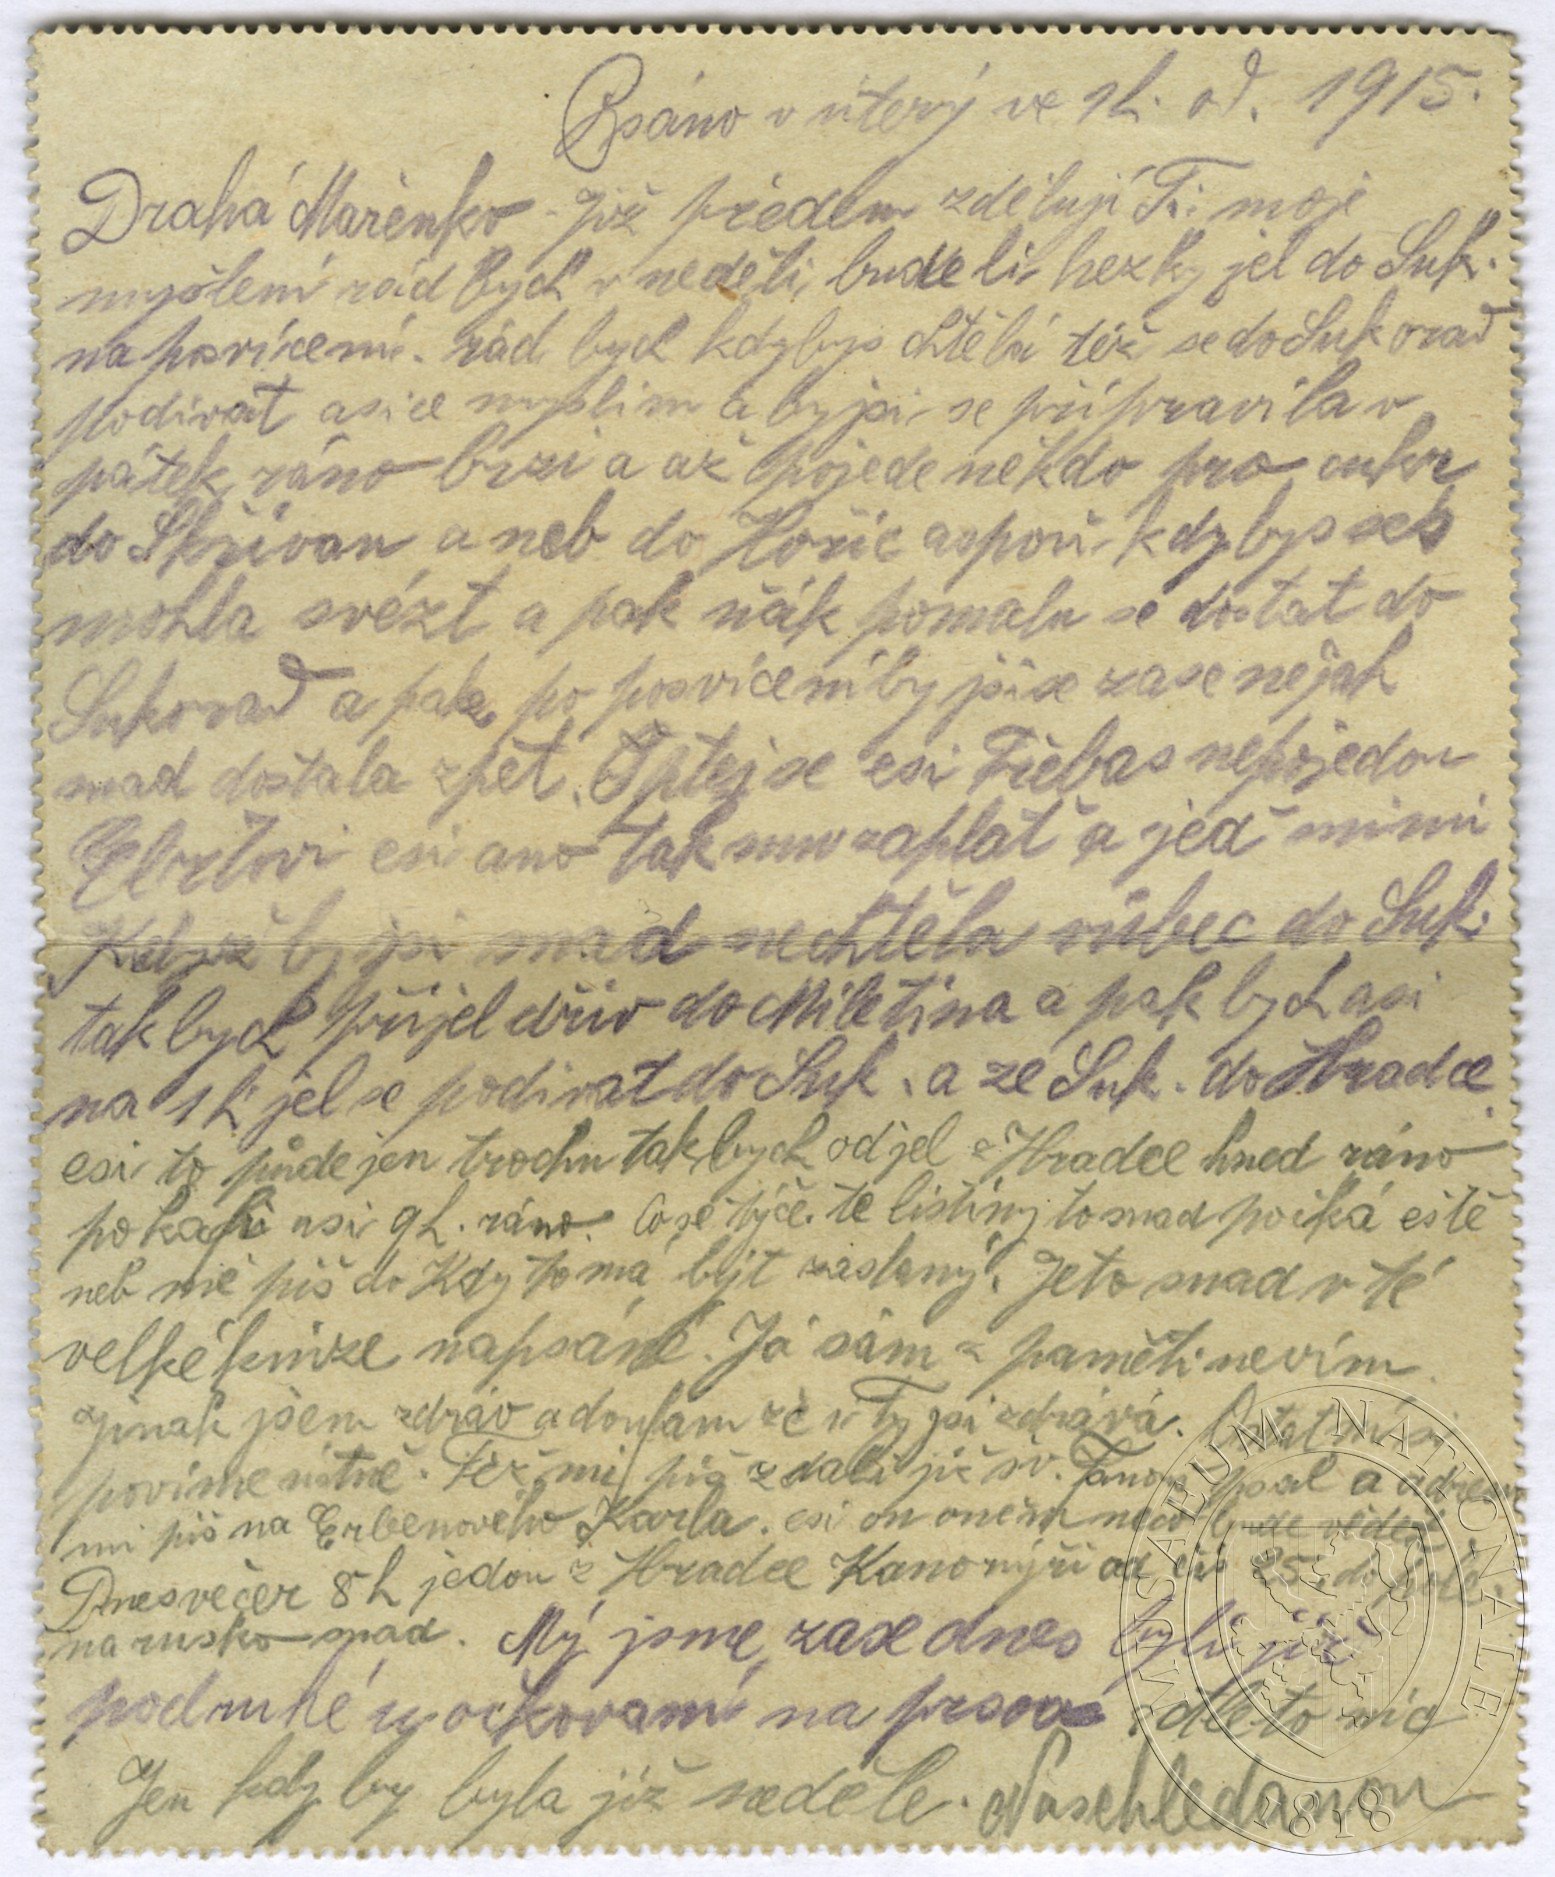 Psáno v úterý ve 1h. od. 1915.
Drahá Mařenko. Již předem zděluji Ti moje
myšlení rád bych v neděli, bude li hezky jel do Suk.
na posvícení. rád bych kdybys chtěla též se do Sukorad
podívat a sice myslim abyjsi se připravila v
pátek ráno brzi a až pojede někdo pro cukr
do Skřivan a neb do Hořic aspoň kdybys se
mohla svézt a pak ňák pomalu se dostat do
Sukorad a pak po posvícení by jsi se zase nějak
snad dostala zpět. Optej se esi Třebas nepojedou
esi ano tak mu zaplať a jeď snimi
Když by jsi snad nechtěla vůbec do Suk.
tak bych přijel dřív do Miletína a pak bych asi
na 1h jel se podívat do Suk. a ze Suk. do Hradce.
esi to půde jen trochu tak bych odjel z Hradce hned ráno
po kafi asi 9h. ráno. Co se týče. té listiny to snad počká eště
neb mě piš do Kdy to má být zaslaný. Jeto snad v té
velké knize napsáné. Já sám z paměti nevím.
Jinak jsem zdráv a doufam že i Ty jsi zdráva. Ostatní si
povíme ústně. Též mi piš zdali již sv. psal a adresu
mi piš na Erbenového Karla. esi on oněm něco bude vědět
Dnes večer 8h jedou z Hradce Kanonýři od 25. do pole.
na rusko snad. Mý jsme zase dnes byli již
podruhé u očkovaní na prsou
Jen kdy by byla již neděle. Naschledanou
MUSAEUM NATIONALE
1818